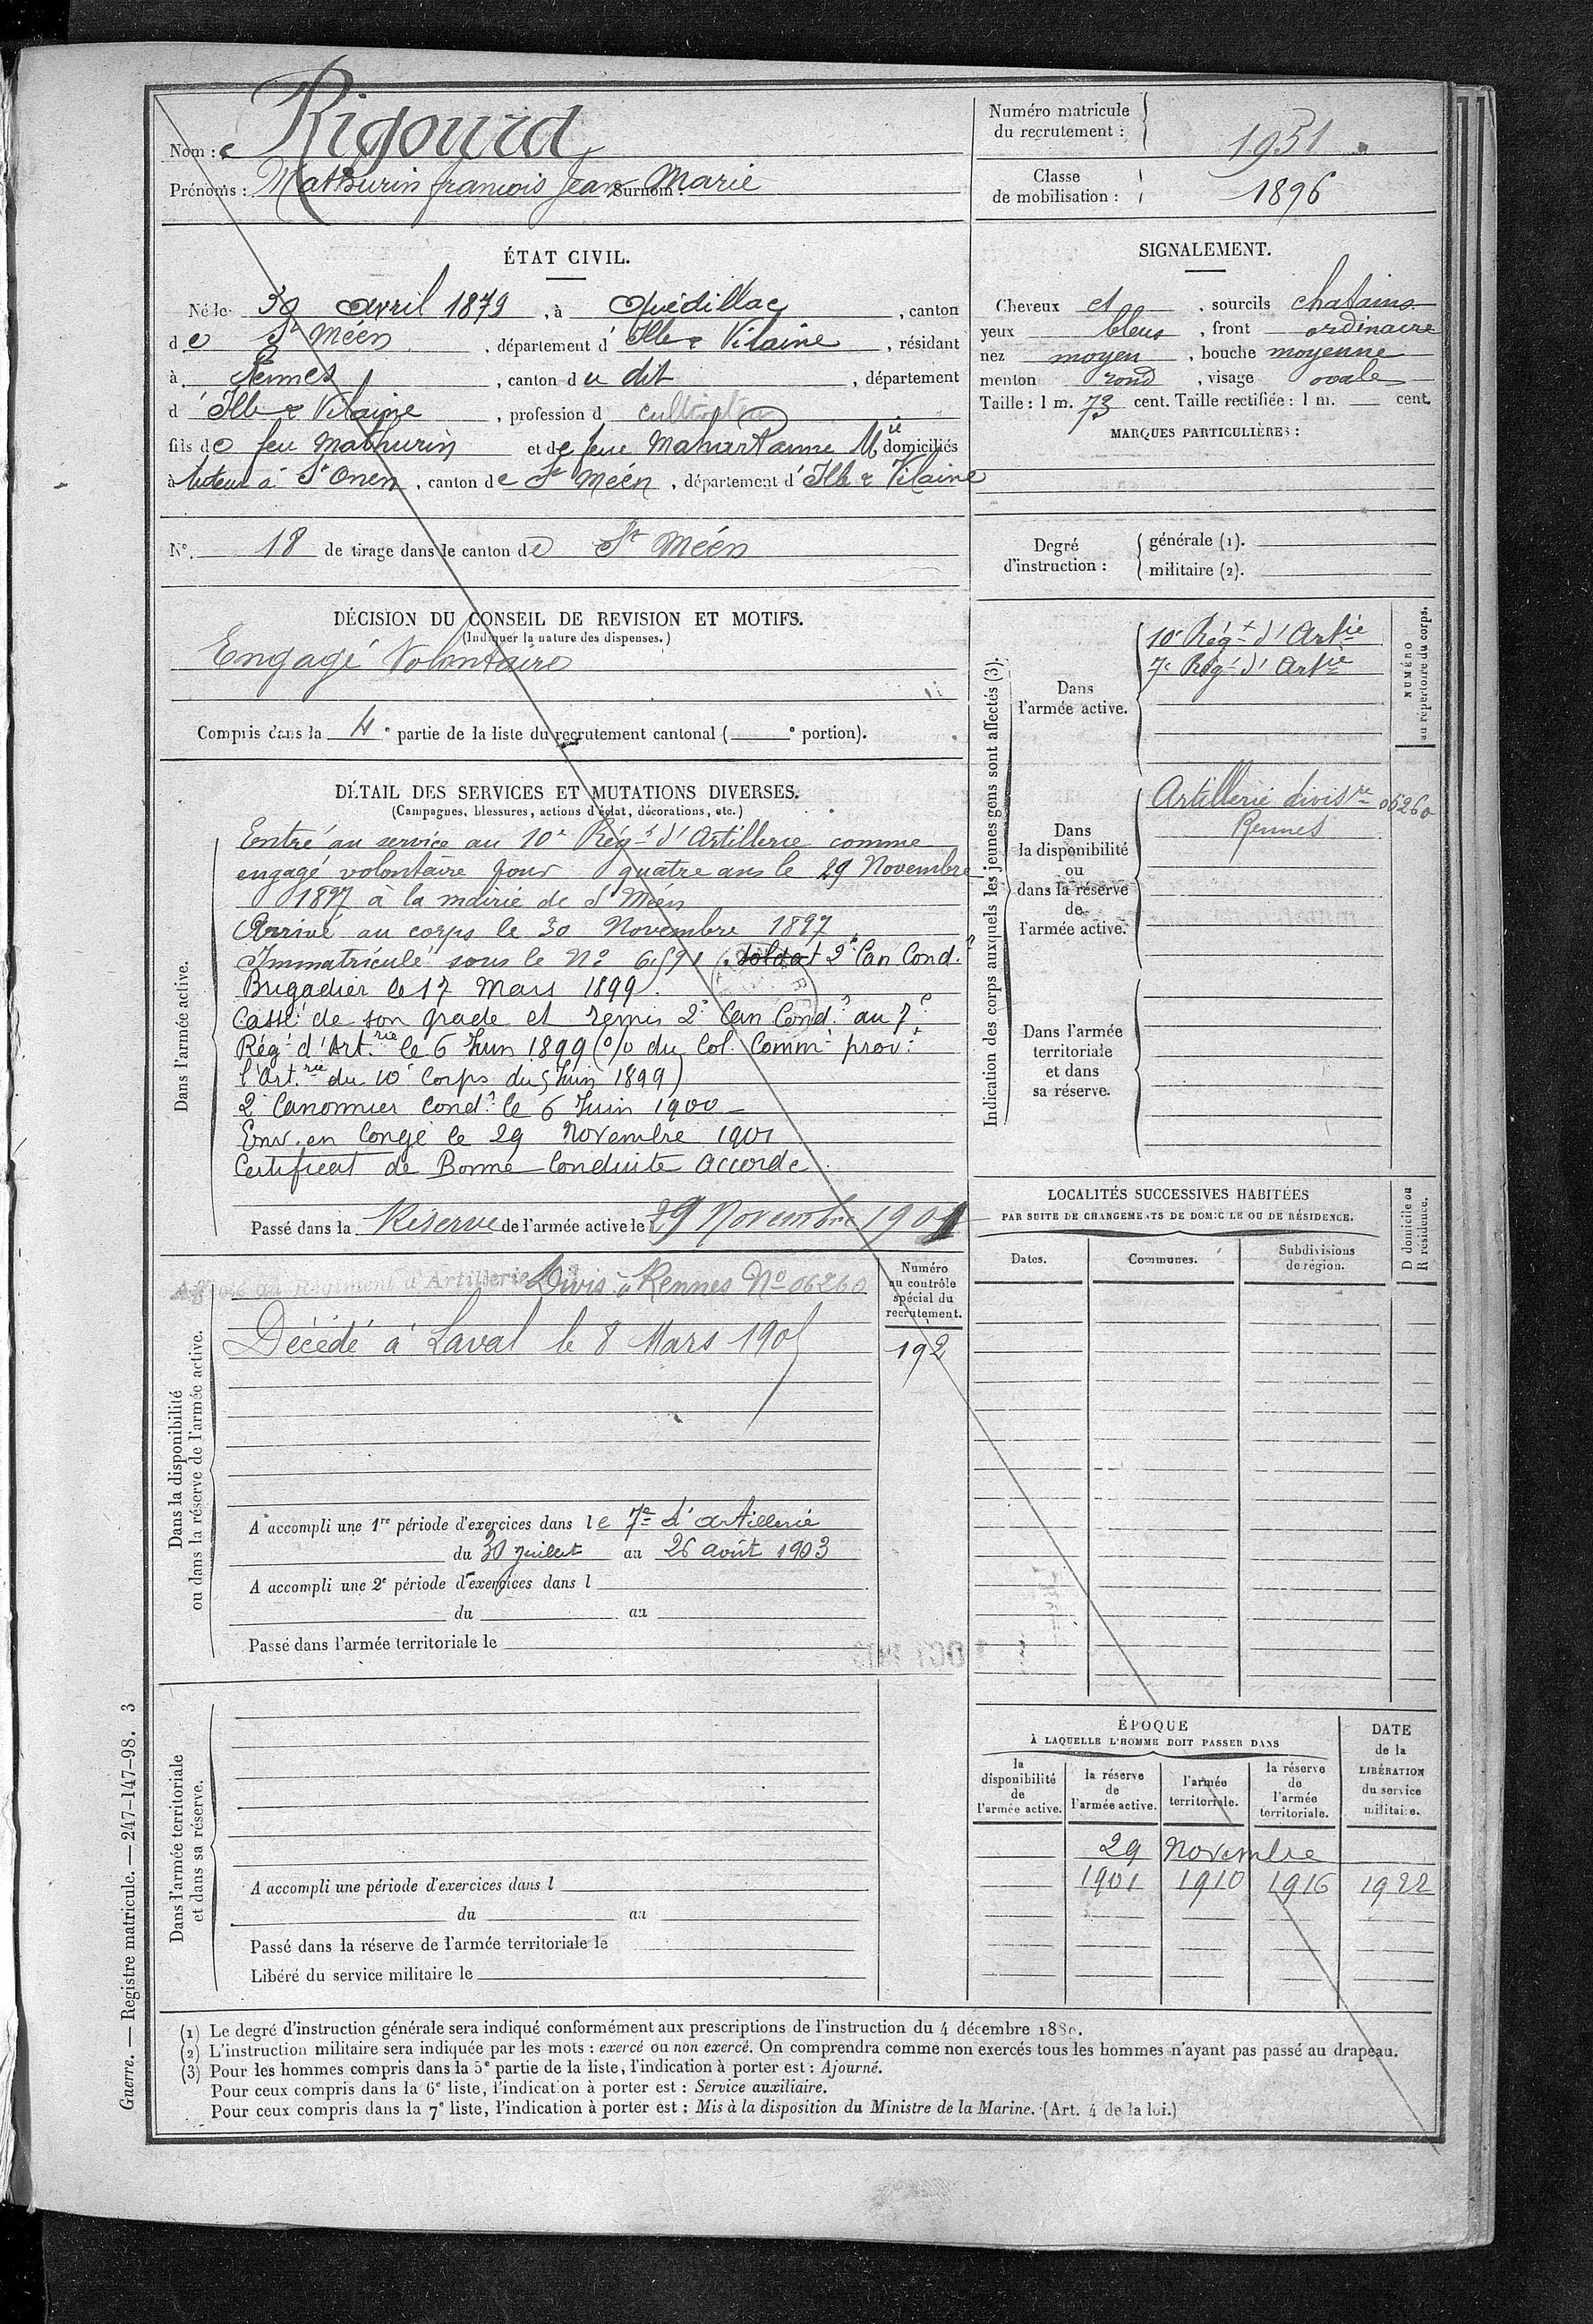 Nom : Rigourd
Prénoms : Mathurin françois Jean Marie Surnom :
Numéro matricule du recrutement : 1951
Classe de mobilisation : 1896
ÉTAT CIVIL.
Né le 30 avril 1879, à Quédillac, canton
de St Méen, département d'Ille & Vilaine, résidant
à Rennes, canton du dit, département
d'Ille & Vilaine, profession d
fils de feu Mathurin et de feue Domiciliés
à tuteur à St Onen, canton de St Méen, département d'Ille & Vilaine
N° 18 de tirage dans le canton de St Méen
SIGNALEMENT.
Cheveux et, sourcils chatains
yeux bleus, front ordinaire
nez moyen, bouche moyenne
menton rond, visage ovale
Taille : 1 m. 73 cent. Taille rectifiée : 1 m. cent.
MARQUES PARTICULIÈRES :
Degré d'instruction :
générale (1).
militaire (2).
DÉCISION DU CONSEIL DE REVISION ET MOTIFS.
(Indiquer la nature des dispenses.)
Engagé Volontaire
Compris dans la 4e partie de la liste du recrutement cantonal ( e portion).
DÉTAIL DES SERVICES ET MUTATIONS DIVERSES.
(Campagnes, blessures, actions d'éclat, décorations, etc.)
Dans l'armée active.
Entré au service au 10e Régt d'Artillerie comme
engagé volontaire pour quatre ans le 29 Novembre
1897 à la mairie de St Méen
Arrivé au corps le 30 Novembre 1897
Immatriculé sous le No 6591. soldat 2e Can Cond.r
Brigadier le 17 Mars 1899.
Cassé de son grade et remis 2e Can Cond.r au 7e
Régt d'Art.rie le 6 Juin 1899 (O/o du Col. Commt prov.t
l'Art.rie du 10e Corps du 5 Juin 1899)
2e Canonnier Cond.r le 6 Juin 1900
Env. en Congé le 29 Novembre 1901
Certificat de Bonne Conduite Accordé.
Passé dans la Réserve de l'armée active le 29 Novembre 1901
Indication des corps auxquels les jeunes gens sont affectés (3).
NUMÉRO au répertoire du corps.
Dans l'armée active.
10e Régt d'Artie
7e Régt d'Artie
Dans la disponibilité ou dans la réserve de l'armée active.
Artillerie divisre 06260
Rennes
Dans l'armée territoriale et dans sa réserve.
Dans la disponibilité ou dans la réserve de l'armée active.
Régiment d'Artillerie Divis. à Rennes No 06260
Décédé à Laval le 8 Mars 1905
Numéro au contrôle spécial du recrutement.
192
A accompli une 1re période d'exercices dans le 7e d'artillerie
du 30 Juillet au 26 août 1903
A accompli une 2e période d'exercices dans l
du au
Passé dans l'armée territoriale le
LOCALITÉS SUCCESSIVES HABITÉES
PAR SUITE DE CHANGEMENTS DE DOMICILE OU DE RÉSIDENCE.
D domicile ou R résidence.
Dates. Communes. Subdivisions de région.
Dans l'armée territoriale et dans sa réserve.
A accompli une période d'exercices dans l
du au
Passé dans la réserve de l'armée territoriale le
Libéré du service militaire le
ÉPOQUE
À LAQUELLE L'HOMME DOIT PASSER DANS
la disponibilité de l'armée active.
la réserve de l'armée active.
l'armée territoriale.
la réserve de l'armée territoriale.
DATE de la LIBÉRATION du service militaire.
29 Novembre
1901 1910 1916 1922
(1) Le degré d'instruction générale sera indiqué conformément aux prescriptions de l'instruction du 4 décembre 1889.
(2) L'instruction militaire sera indiquée par les mots : exercé ou non exercé. On comprendra comme non exercés tous les hommes n'ayant pas passé au drapeau.
(3) Pour les hommes compris dans la 5e partie de la liste, l'indication à porter est : Ajourné.
Pour ceux compris dans la 6e liste, l'indication à porter est : Service auxiliaire.
Pour ceux compris dans la 7e liste, l'indication à porter est : Mis à la disposition du Ministre de la Marine. (Art. 4 de la loi.)
Guerre. — Registre matricule. — 247-147-98. 3